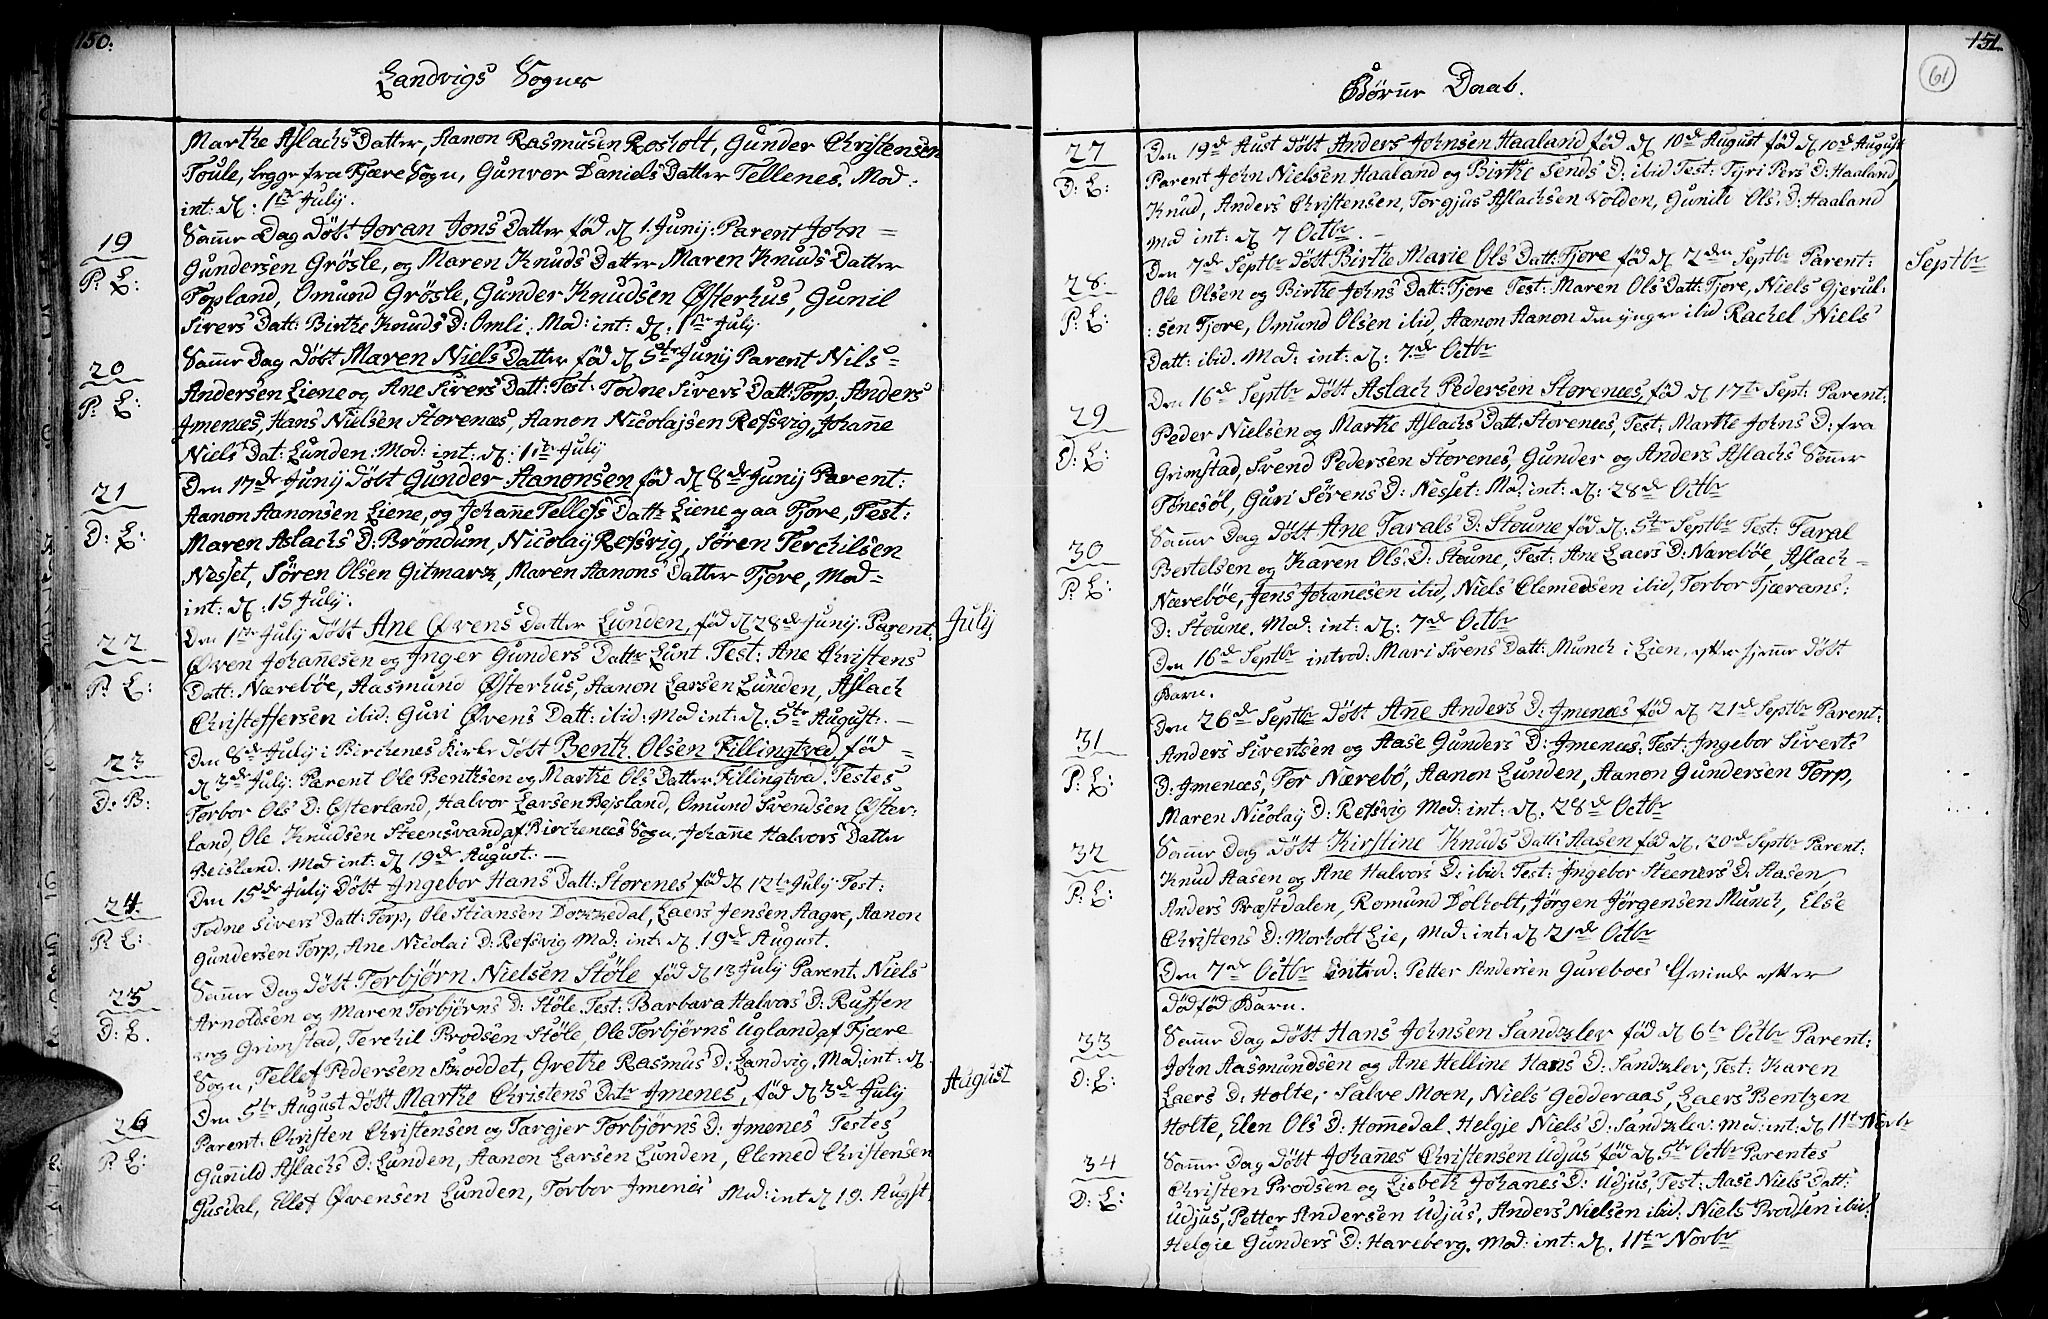 150.
Landvigs Sogner
Marthe Aslachs Datter, Aanon Rasmusen Rosholt, Gunder Christensen
Toule, begge fra Fjære Sogn, Gunvor Daniels Datter Tellenes. Mod:
int: d: 1te July.
19
Samme Dag døbt Joran Jons Datter fød d 1. Junij: Parent John
P: L:
Gundersen Grösle, og Maren Knuds Datter Maren Knuds Datter
Topland, Omund Grösle, Gunder Knudsen Østerhus, Gunil
Sivers Datt: Birthe Knuds D: Omli. Mod: int: d: 1te July
20
Samme Dag døbt Maren Niels Datter fød d 5te Junij Parent Nils
P: L:
Andersen Liene og Ane Sivers Datt: Test: Todne Sivers Datt: Torp, Anders
Imenæs, Hans Nielsen Storenæs, Aanon Nicolajsen Refsvig, Johanne
Niels Dat: Lunden: Mod: int: d: 1te July
21
Den 17de Junij døbt Gunder Aanonsen fød d 8de Junij Parent:
D: L:
Aanon Aanonsen Liene, og Johanne Tellefs Dattr Liene paa Fjore, Test:
Maren Aslachs D: Brøndum, Nicolaij Refsvig, Søren Terchilsen
Nesset, Søren Olsen Gitmark, Maren Aanons Datter Fjore, Mod=
int: d: 15 July.
22
Den 1te July døbt Ane Øvens Datter Lunden, fød d 28de Junij: Parent.
July
P: L:
Øven Johannesen og Inger Gunders Dattr Lunt. Test: Ane Christens
Datt: Nærebøe, Aasmund Østerhus, Aanon Larsen Lunden, Aslach
Christoffersen ibid: Guri Øvens Datt: ibid: Mod int: d. 5te August.
23
Den 8de July i Birchenes Kirke døbt Benth Olsen Fillingtved, fød
D: B:
d 3de July: Parent Ole Benthsen og Marthe Ols Datter Fillingtvd. Testes
Torbor Ols D: Østerland, Halvor Larsen Beisland, Omund Svendsen Øster-
land, Ole Knudsen Steensvand af Birchenes Sogn, Johanne Halvors Datter
Beisland. Mod int: d 19de August.
24
Den 15de July døbt Ingebor Hans Datt: Storenes fød d 12te July Test:
P: L:
Todne Sivers Datt: Torp, Ole Stiansen Dokkedal, Laers Jensen Aagre, Aanon
Gundersen Torp, Ane Nicolai D: Refsvig Mod: int: d. 19de August.
25
Samme Dag døbt Torbjørn Nielsen Støle fød d 13 July Parent. Niels
D: L.
Arnoldsen og Maren Torbjørns D: Støle. Test: Barbara Halvors D: Russen
Grimstad, Terchil Brodsen Støle, Ole Torbjørns Ugland af Fjære
Sogn, Tellef Pedersen Skoddet, Grethe Rasmus D: Landvig. Mod: int: d.
August
26
Den 5te August døbt Marthe Christens Datr Imenes, fød d 3de July
P: L:
Parent: Christen Christensen og Targjer Torbjørns D: Imenes Testes
Gunnild Aslachs D: Lunden, Aanon Larsen Lunden, Clemed Christensen
Gusdal, Ellef Øvensen Lunden, Torbor Imenes Mod: int d 19. Augst
151.
61
Børner Daab.
27
Den 19de Aust døbt Anders Johnsen Haaland fød d 10de August fød d 10de August
D: L:
Parent John Nielsen Haaland og Birthe Sends D: ibid Test: Tijri Pers D: Haaland,
Knud, Anders Christensen, Torgjus Aslachsen Volden, Gunild Ols: D: Haaland
Mod int: d 7 Octbr.
28
Den 7de Septbr døbt Birthe Marie Ols Datt: Fjore fød d 2den Septbr Parent:
Septbr
P: L:
Ole Olsen og Birthe Johns Datt: Fjore Test: Maren Ols Datt: Fjore, Niels Gjerul-
:sen Fjore, Omund Olsen ibid, Aanon Aanon den ynger ibid Rachel Niels
Datt: ibid. Mod: int: d: 7de Octbr
29
Den 16de Septbr døbt Aslach Pedersen Storenæs, fød d 17te Sept: Parent:
D: L:
Peder Nielsen og Marthe Aslachs Datt: Storenæs, Test: Marthe Johns D: fra
Grimstad, Svend Pedersen Storenes, Gunder og Anders Aslachs Sønner
Tønesöl, Guri Sørens D: Nesset: Mod: int: d: 28de Octbr
30
Samme Dag døbt Ane Tarals D: Stoune fød d: 5te Septbr Test: Taral
P: L:
Bertelsen og Karen Ols: D: Stoune, Test: Ane Laers D: Nærebøe, Aslach
Nærebøe, Jens Johannesen ibid, Niels Clemedsen ibid, Torbor Tjærans:
D: Stoune. Mod: int: d: 7de Octbr
Den 16de Septbr introd: Mari Svens Datt: Munch i Lien, efter hjemme døbt
Barn.
31
Den 26de Septbr døbt Anne Anders D: Imenæs fød d 21de Septbr Parent:
P: L:
Anders Sivertsen og Aase Gunders D: Imenæs: Test: Ingebor Siverts
D: Imenæs, Tor Nærebö, Aanon Lunden, Aanon Gundersen Torp,
Maren Nicolaij D: Refsvig Mod: int: d. 28de Octbr
32
Samme Dag døbt Kirstine Knuds Datt: Aasen fød d. 20de Septbr Parent:
P: L:
Knud Aasen og Ane Halvors D: ibid. Test: Ingebor Steeners D: Aasen,
Anders Præstdalen, Romund Dolholt, Jørgen Jørgensen Munch, Else
Christens D: Morholt Lie, Mod: int: d 21de Octbr
Den 7de Octbr introd: Petter Andersen Gureboes Qvinde efter
Dødfød Barn.
33
Samme Dag døbt Hans Johnsen Sandklev fød d 6te Octbr Parent:
D: L:
John Aasmundsen og Ane Helline Hans D: Sandklev, Test: Karen
Laers D: Holte, Salve Moen, Niels Gedderaas, Laers Bentzen
Holte, Elen Ols D: Hommedal. Helgje Niels D: Sandklev: Mod: int: d 11te Novbr
34
Samme Dag døbt Johannes Christensen Udjus fød d 5te Octbr Parentes
D: L:
Christen Brodsen og Lisbeth Johanes D: Udjus, Test: Aase Niels Datt:
Udjus, Petter Andersen Udjus, Anders Nielsen ibid: Niels Brodsen ibid:
Helgie Gunders D: Hareberg. Mod: int: d. 11te Novbr